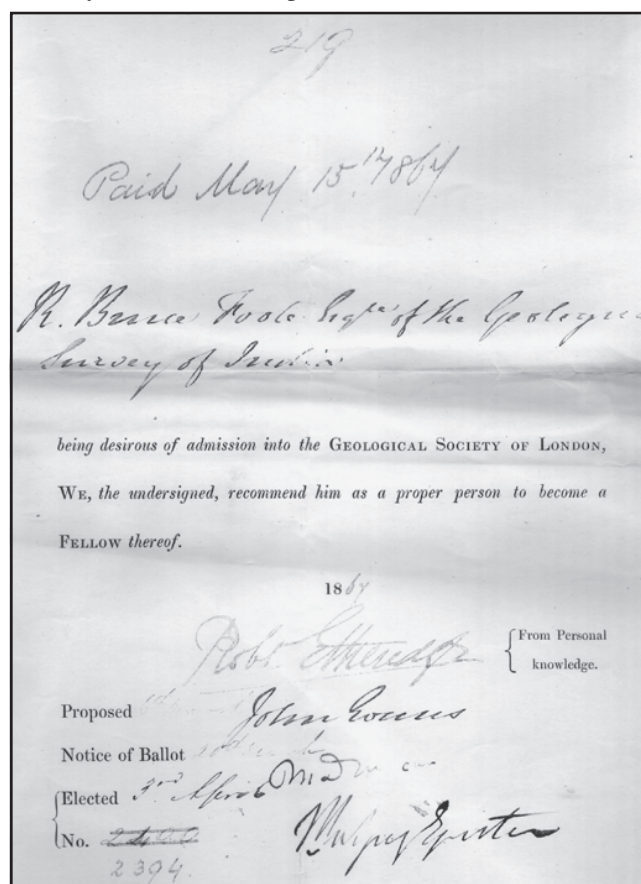 219
Paid May 15th 1867
R. Bruce Foote Esqre of the Geologic
Survey of India
being desirous of admission into the GEOLOGICAL SOCIETY OF LONDON,
WE, the undersigned, recommend him as a proper person to become a
FELLOW thereof.
1867
Robt Etheridge
From Personal
knowledge.
Proposed
John Evans
Notice of Ballot
Elected 3rd April
No. 2400
2394.